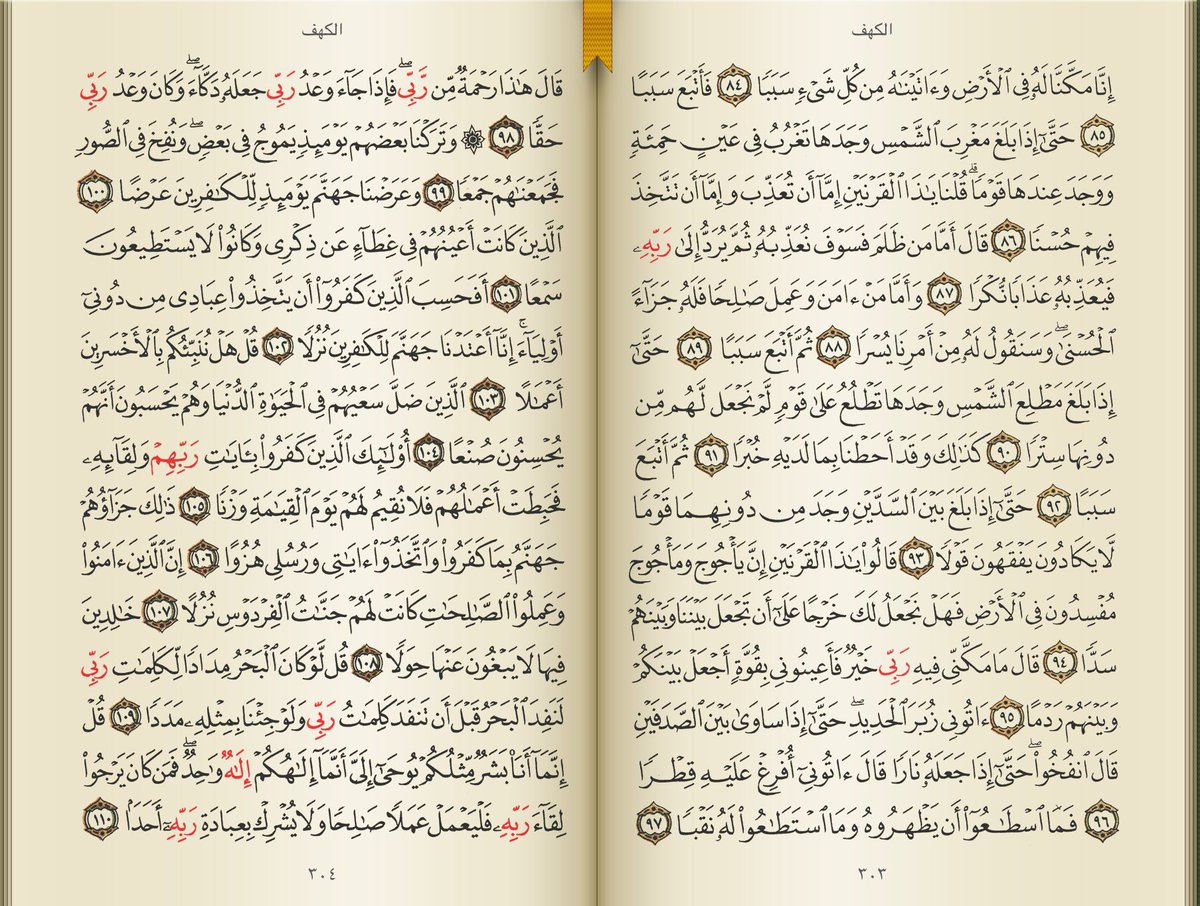 الكهف
إِنَّا مَكَّنَّا لَهُۥ فِى ٱلْأَرْضِ وَءَاتَيْنَٰهُ مِن كُلِّ شَىْءٍ سَبَبًا ٨٤ فَأَتْبَعَ سَبَبًا
٨٥ حَتَّىٰٓ إِذَا بَلَغَ مَغْرِبَ ٱلشَّمْسِ وَجَدَهَا تَغْرُبُ فِى عَيْنٍ حَمِئَةٍ
وَوَجَدَ عِندَهَا قَوْمًا ۗ قُلْنَا يَٰذَا ٱلْقَرْنَيْنِ إِمَّآ أَن تُعَذِّبَ وَإِمَّآ أَن تَتَّخِذَ
فِيهِمْ حُسْنًا ٨٦ قَالَ أَمَّا مَن ظَلَمَ فَسَوْفَ نُعَذِّبُهُۥ ثُمَّ يُرَدُّ إِلَىٰ رَبِّهِۦ
فَيُعَذِّبُهُۥ عَذَابًا نُّكْرًا ٨٧ وَأَمَّا مَنْ ءَامَنَ وَعَمِلَ صَٰلِحًا فَلَهُۥ جَزَآءً
ٱلْحُسْنَىٰ ۖ وَسَنَقُولُ لَهُۥ مِنْ أَمْرِنَا يُسْرًا ٨٨ ثُمَّ أَتْبَعَ سَبَبًا ٨٩ حَتَّىٰٓ
إِذَا بَلَغَ مَطْلِعَ ٱلشَّمْسِ وَجَدَهَا تَطْلُعُ عَلَىٰ قَوْمٍ لَّمْ نَجْعَل لَّهُم مِّن
دُونِهَا سِتْرًا ٩٠ كَذَٰلِكَ وَقَدْ أَحَطْنَا بِمَا لَدَيْهِ خُبْرًا ٩١ ثُمَّ أَتْبَعَ
سَبَبًا ٩٢ حَتَّىٰٓ إِذَا بَلَغَ بَيْنَ ٱلسَّدَّيْنِ وَجَدَ مِن دُونِهِمَا قَوْمًا
لَّا يَكَادُونَ يَفْقَهُونَ قَوْلًا ٩٣ قَالُوا۟ يَٰذَا ٱلْقَرْنَيْنِ إِنَّ يَأْجُوجَ وَمَأْجُوجَ
مُفْسِدُونَ فِى ٱلْأَرْضِ فَهَلْ نَجْعَلُ لَكَ خَرْجًا عَلَىٰٓ أَن تَجْعَلَ بَيْنَنَا وَبَيْنَهُمْ
سَدًّا ٩٤ قَالَ مَا مَكَّنِّى فِيهِ رَبِّى خَيْرٌ فَأَعِينُونِى بِقُوَّةٍ أَجْعَلْ بَيْنَكُمْ
وَبَيْنَهُمْ رَدْمًا ٩٥ ءَاتُونِى زُبَرَ ٱلْحَدِيدِ ۖ حَتَّىٰٓ إِذَا سَاوَىٰ بَيْنَ ٱلصَّدَفَيْنِ
قَالَ ٱنفُخُوا۟ ۖ حَتَّىٰٓ إِذَا جَعَلَهُۥ نَارًا قَالَ ءَاتُونِىٓ أُفْرِغْ عَلَيْهِ قِطْرًا
٩٦ فَمَا ٱسْطَٰعُوٓا۟ أَن يَظْهَرُوهُ وَمَا ٱسْتَطَٰعُوا۟ لَهُۥ نَقْبًا ٩٧
٣٠٣
الكهف
قَالَ هَٰذَا رَحْمَةٌ مِّن رَّبِّى ۖ فَإِذَا جَآءَ وَعْدُ رَبِّى جَعَلَهُۥ دَكَّآءَ ۖ وَكَانَ وَعْدُ رَبِّى
حَقًّا ٩٨ ۞ وَتَرَكْنَا بَعْضَهُمْ يَوْمَئِذٍ يَمُوجُ فِى بَعْضٍ ۖ وَنُفِخَ فِى ٱلصُّورِ
فَجَمَعْنَٰهُمْ جَمْعًا ٩٩ وَعَرَضْنَا جَهَنَّمَ يَوْمَئِذٍ لِّلْكَٰفِرِينَ عَرْضًا ١٠٠
ٱلَّذِينَ كَانَتْ أَعْيُنُهُمْ فِى غِطَآءٍ عَن ذِكْرِى وَكَانُوا۟ لَا يَسْتَطِيعُونَ
سَمْعًا ١٠١ أَفَحَسِبَ ٱلَّذِينَ كَفَرُوٓا۟ أَن يَتَّخِذُوا۟ عِبَادِى مِن دُونِىٓ
أَوْلِيَآءَ ۚ إِنَّآ أَعْتَدْنَا جَهَنَّمَ لِلْكَٰفِرِينَ نُزُلًا ١٠٢ قُلْ هَلْ نُنَبِّئُكُم بِٱلْأَخْسَرِينَ
أَعْمَٰلًا ١٠٣ ٱلَّذِينَ ضَلَّ سَعْيُهُمْ فِى ٱلْحَيَوٰةِ ٱلدُّنْيَا وَهُمْ يَحْسَبُونَ أَنَّهُمْ
يُحْسِنُونَ صُنْعًا ١٠٤ أُو۟لَٰٓئِكَ ٱلَّذِينَ كَفَرُوا۟ بِـَٔايَٰتِ رَبِّهِمْ وَلِقَآئِهِۦ
فَحَبِطَتْ أَعْمَٰلُهُمْ فَلَا نُقِيمُ لَهُمْ يَوْمَ ٱلْقِيَٰمَةِ وَزْنًا ١٠٥ ذَٰلِكَ جَزَآؤُهُمْ
جَهَنَّمُ بِمَا كَفَرُوا۟ وَٱتَّخَذُوٓا۟ ءَايَٰتِى وَرُسُلِى هُزُوًا ١٠٦ إِنَّ ٱلَّذِينَ ءَامَنُوا۟
وَعَمِلُوا۟ ٱلصَّٰلِحَٰتِ كَانَتْ لَهُمْ جَنَّٰتُ ٱلْفِرْدَوْسِ نُزُلًا ١٠٧ خَٰلِدِينَ
فِيهَا لَا يَبْغُونَ عَنْهَا حِوَلًا ١٠٨ قُل لَّوْ كَانَ ٱلْبَحْرُ مِدَادًا لِّكَلِمَٰتِ رَبِّى
لَنَفِدَ ٱلْبَحْرُ قَبْلَ أَن تَنفَدَ كَلِمَٰتُ رَبِّى وَلَوْ جِئْنَا بِمِثْلِهِۦ مَدَدًا ١٠٩ قُلْ
إِنَّمَآ أَنَا۠ بَشَرٌ مِّثْلُكُمْ يُوحَىٰٓ إِلَىَّ أَنَّمَآ إِلَٰهُكُمْ إِلَٰهٌ وَٰحِدٌ ۖ فَمَن كَانَ يَرْجُوا۟
لِقَآءَ رَبِّهِۦ فَلْيَعْمَلْ عَمَلًا صَٰلِحًا وَلَا يُشْرِكْ بِعِبَادَةِ رَبِّهِۦٓ أَحَدًۢا ١١٠
٣٠٤